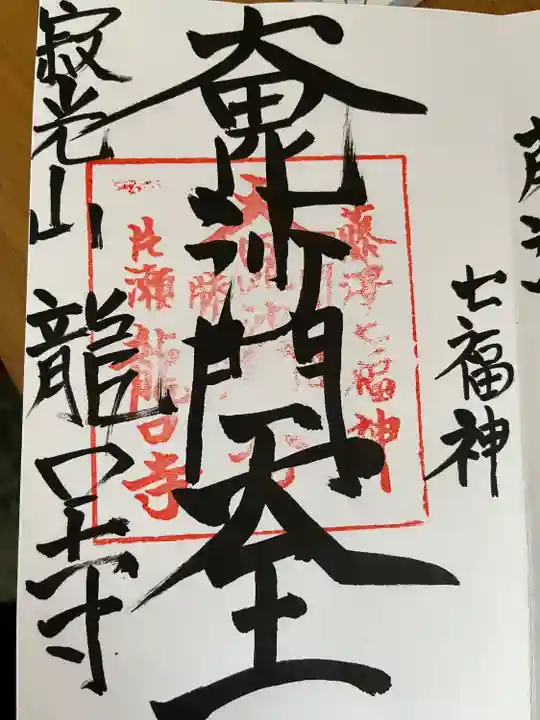 七福神
大毘沙門天王
寂光山 龍口寺
藤澤七福神
片瀬 龍口寺